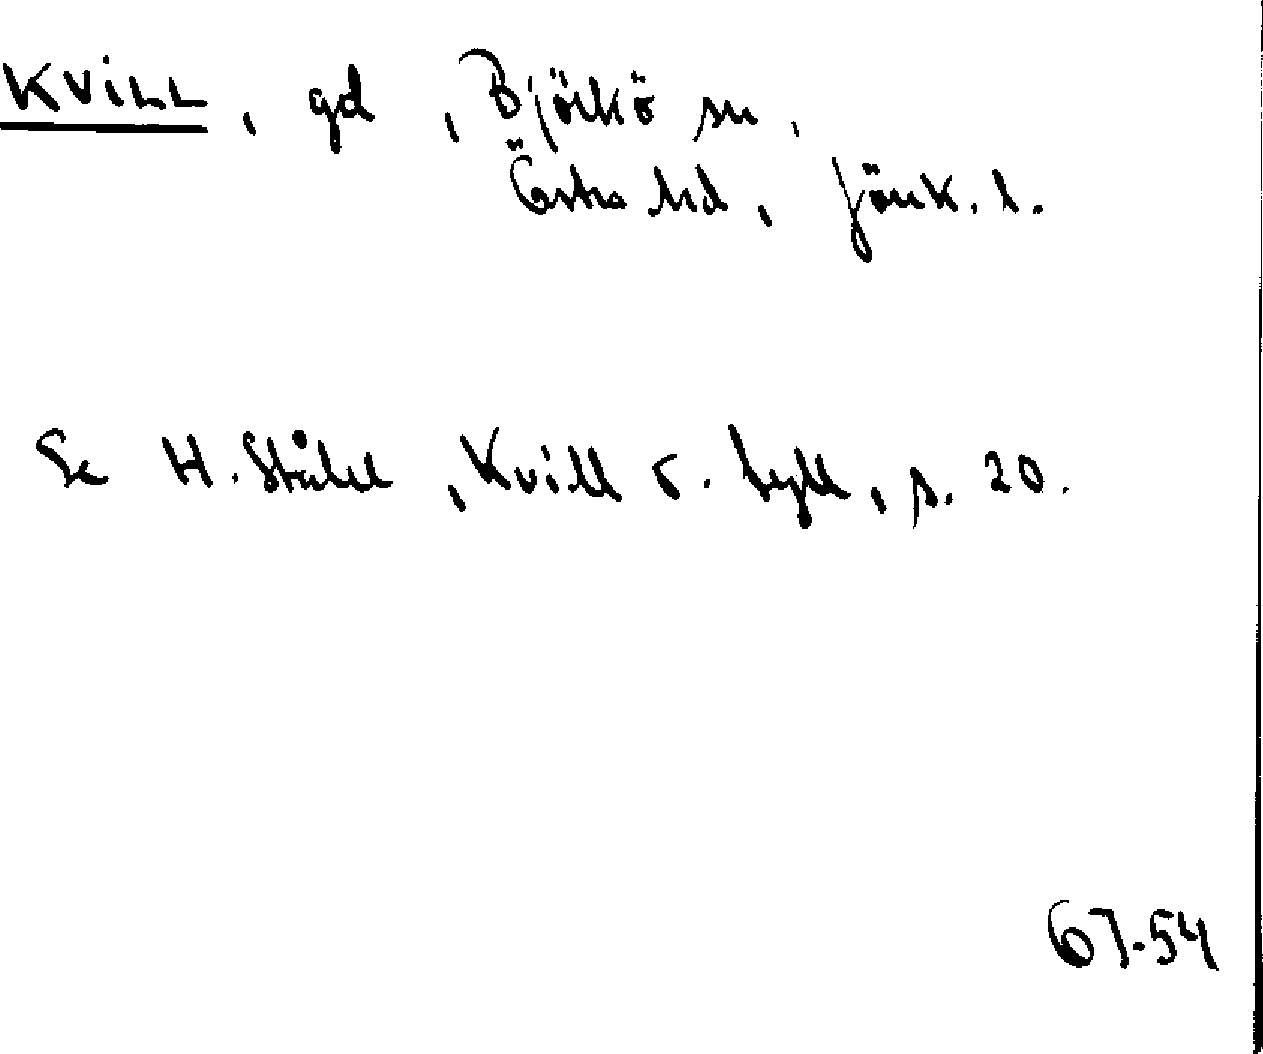 KVILL, gd, Björkö sn,
Östra hd, Jönk. l.
Se H. Ståhl, Kvill o. Tyll, s. 20.
67.54